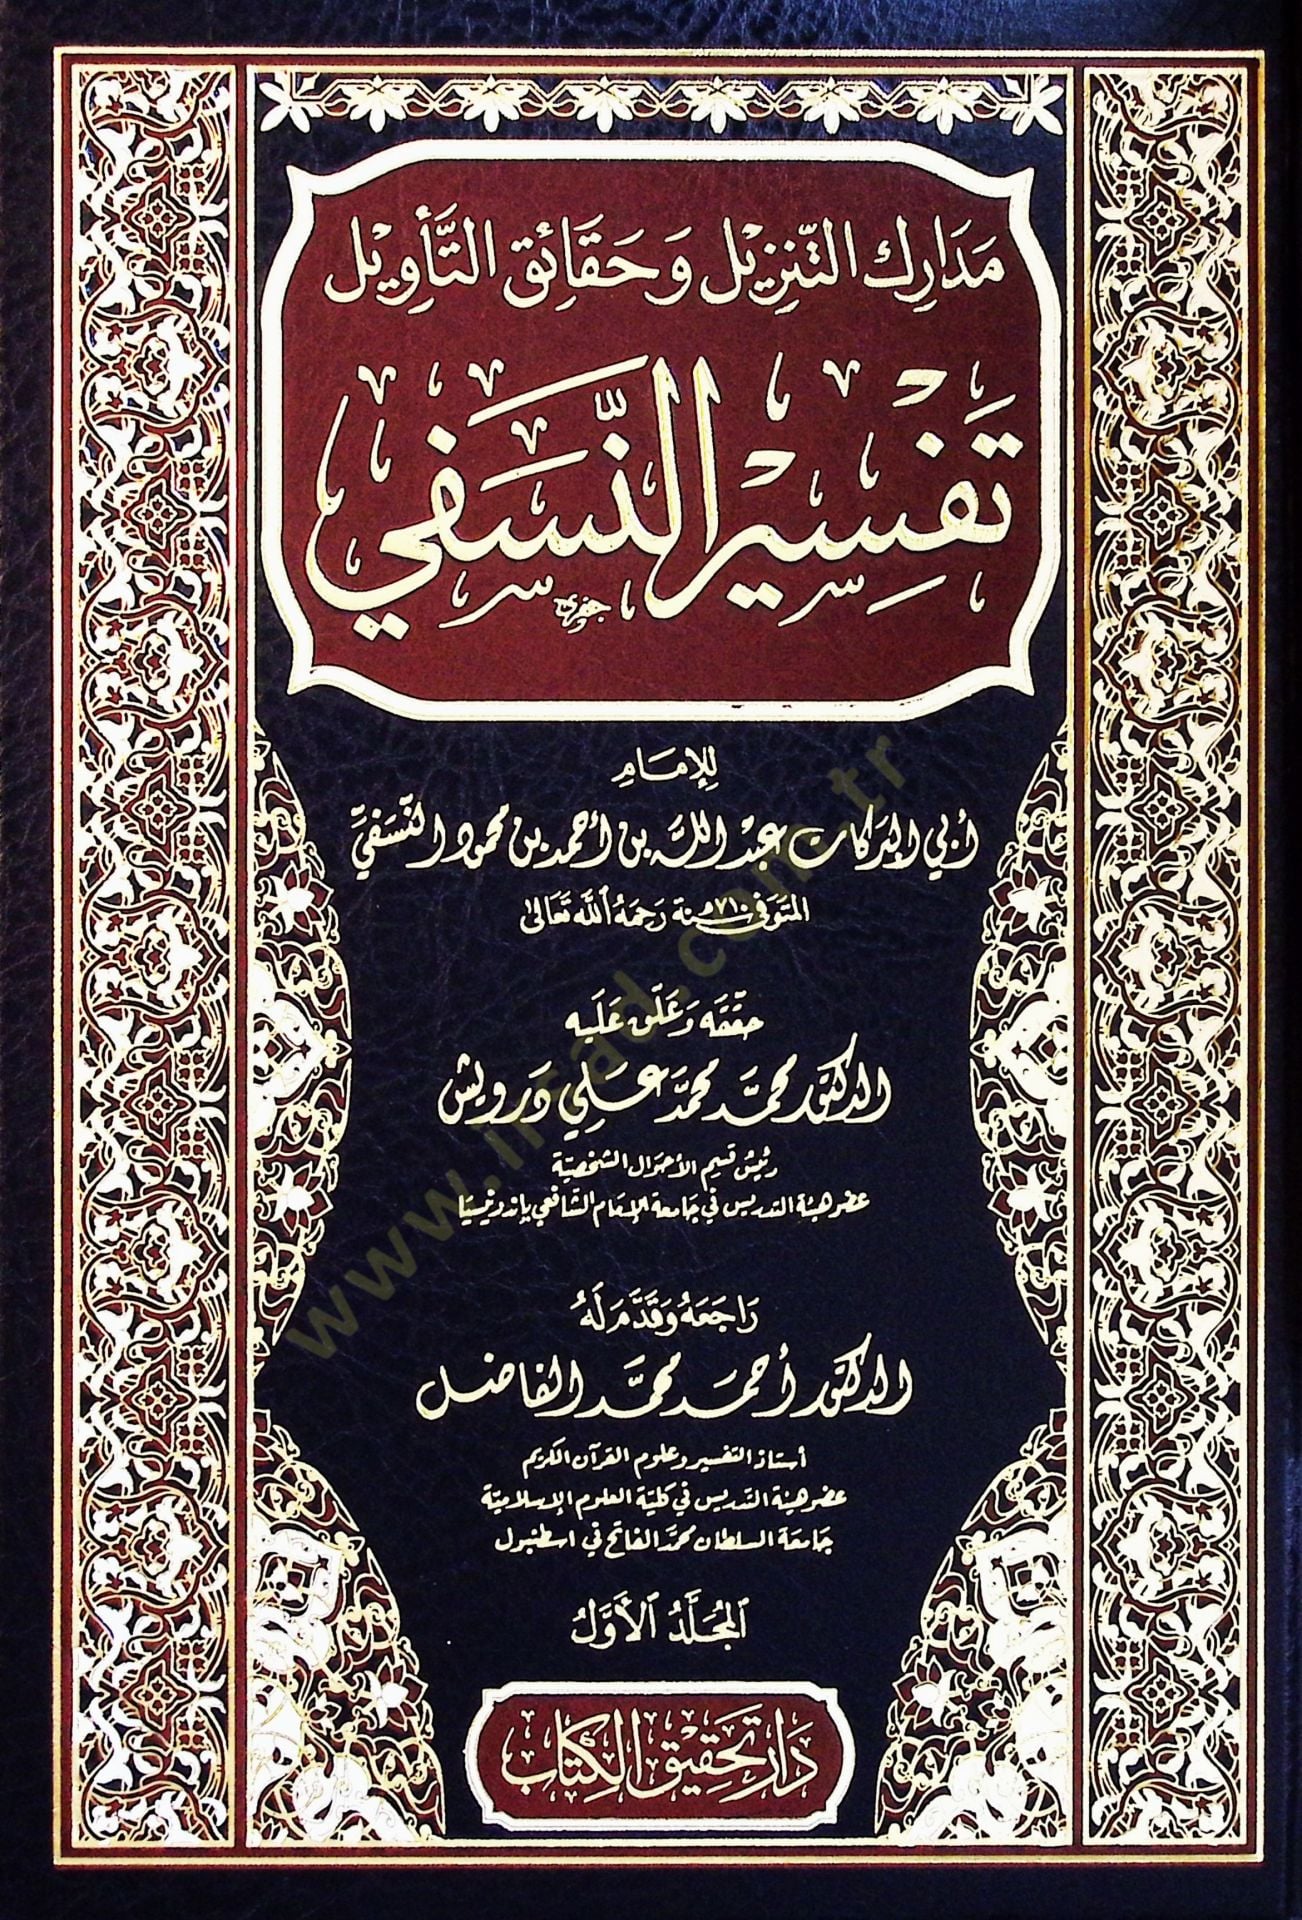 مَدَارِك التَّنزِيْل وَحَقَائِق التَّأوِيْل
تَفْسِيْر النَّسَفِي
جفري
لِلإِمَامِ
أبي البركات عبد الله بن أحمد بن محمود النَّسَفيِّ
المتَوَفى سنة ٧١٠هـ رَحِمَهُ اللَّه تَعَالىٰ
حقّقه وَعَلّق عَلَيه
الدكتور محمّد محمّد علي درويش
رئيس قسم الأحوال الشخصيّة
عضو هيئة التدريس في جَامعة الإمَام الشافعي بإندونيسيَا
رَاجَعَهُ وَقَدَّمَ لَهُ
الدكتور أحمد محمّد الفاضل
أستاذ التفسير وعلوم القرآن الكريم
عضو هيئة التدريس في كليّة العلوم الإسلاميّة
جَامعة السلطان محمّد الفاتح في اسطنبول
المُجَلَّدُ الأَوَّلُ
دَار تَحقِيْق الكِتَاب
www.irsad.com.tr